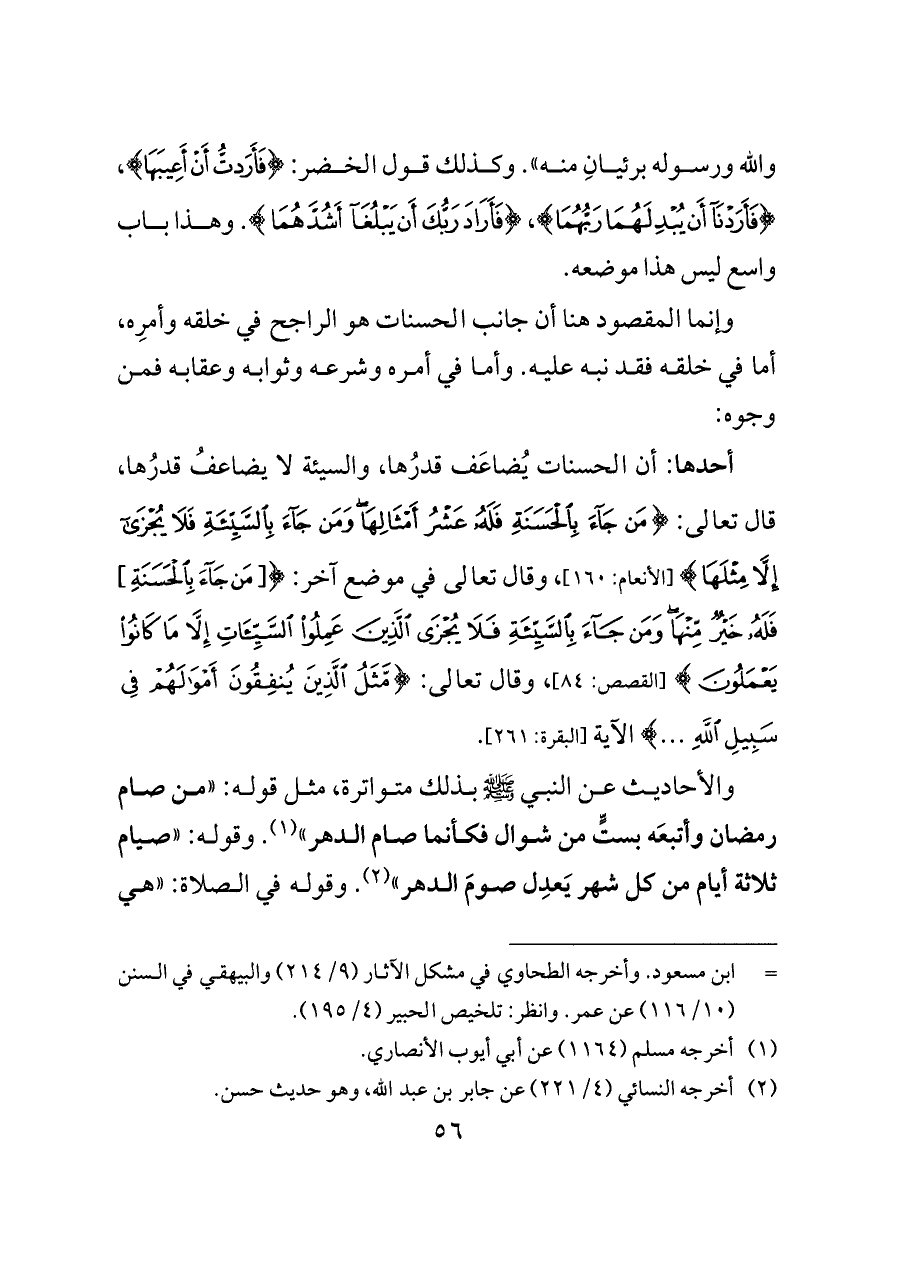 والله ورسوله برئيانِ منه». وكذلك قول الخضر: ﴿فَأَرَدتُّ أَنْ أَعِيبَهَا﴾،
﴿فَأَرَدْنَآ أَن يُبْدِلَهُمَا رَبُّهُمَا﴾، ﴿فَأَرَادَ رَبُّكَ أَن يَبْلُغَآ أَشُدَّهُمَا﴾. وهذا باب
واسع ليس هذا موضعه.
وإنما المقصود هنا أن جانب الحسنات هو الراجح في خلقه وأمرِه،
أما في خلقه فقد نبه عليه. وأما في أمره وشرعه وثوابه وعقابه فمن
وجوه:
أحدها: أن الحسنات يُضاعَف قدرُها، والسيئة لا يضاعفُ قدرُها،
قال تعالى: ﴿مَن جَآءَ بِٱلْحَسَنَةِ فَلَهُۥ عَشْرُ أَمْثَالِهَا ۖ وَمَن جَآءَ بِٱلسَّيِّئَةِ فَلَا يُجْزَىٰٓ
إِلَّا مِثْلَهَا﴾ [الأنعام: ١٦٠]، وقال تعالى في موضع آخر: ﴿[مَن جَآءَ بِٱلْحَسَنَةِ]
فَلَهُۥ خَيْرٌ مِّنْهَا ۖ وَمَن جَآءَ بِٱلسَّيِّئَةِ فَلَا يُجْزَى ٱلَّذِينَ عَمِلُوا۟ ٱلسَّيِّئَاتِ إِلَّا مَا كَانُوا۟
يَعْمَلُونَ﴾ [القصص: ٨٤]، وقال تعالى: ﴿مَّثَلُ ٱلَّذِينَ يُنفِقُونَ أَمْوَٰلَهُمْ فِى
سَبِيلِ ٱللَّهِ ...﴾ الآية [البقرة: ٢٦١].
والأحاديث عن النبي ﷺ بذلك متواترة، مثل قوله: «من صام
رمضان وأتبعَه بستٍّ من شوال فكأنما صام الدهر»(١). وقوله: «صيام
ثلاثة أيام من كل شهر يَعدِل صومَ الدهر»(٢). وقوله في الصلاة: «هي
= ابن مسعود. وأخرجه الطحاوي في مشكل الآثار (٩/ ٢١٤) والبيهقي في السنن
(١٠/ ١١٦) عن عمر. وانظر: تلخيص الحبير (٤/ ١٩٥).
(١) أخرجه مسلم (١١٦٤) عن أبي أيوب الأنصاري.
(٢) أخرجه النسائي (٤/ ٢٢١) عن جابر بن عبد الله، وهو حديث حسن.
٥٦